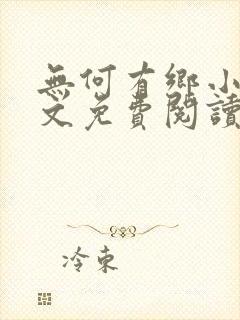 無何有鄉小
文免費閱讀
冷東